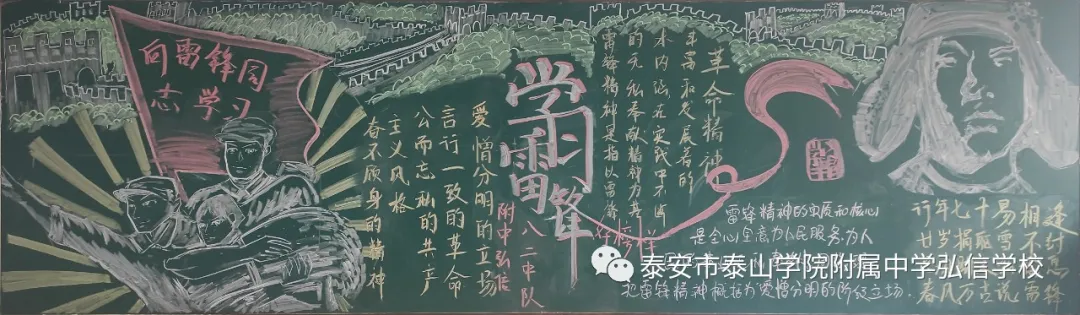 向雷锋同
志学习
学雷锋
爱憎分明的立场
言行一致的革命
公而忘私的共产
主义风格
奋不顾身的精神
附中弘信
八二中队
革命精神
雷锋精神是指以雷锋
的无私奉献精神为基
本内涵在实践中不断
丰富和发展着的
雷锋精神的实质和核心
是全心全意为人民服务为人
把雷锋精神概括为爱憎分明的阶级立场.
行年七十易相逢
春风万古说雷锋
泰安市泰山学院附属中学弘信学校